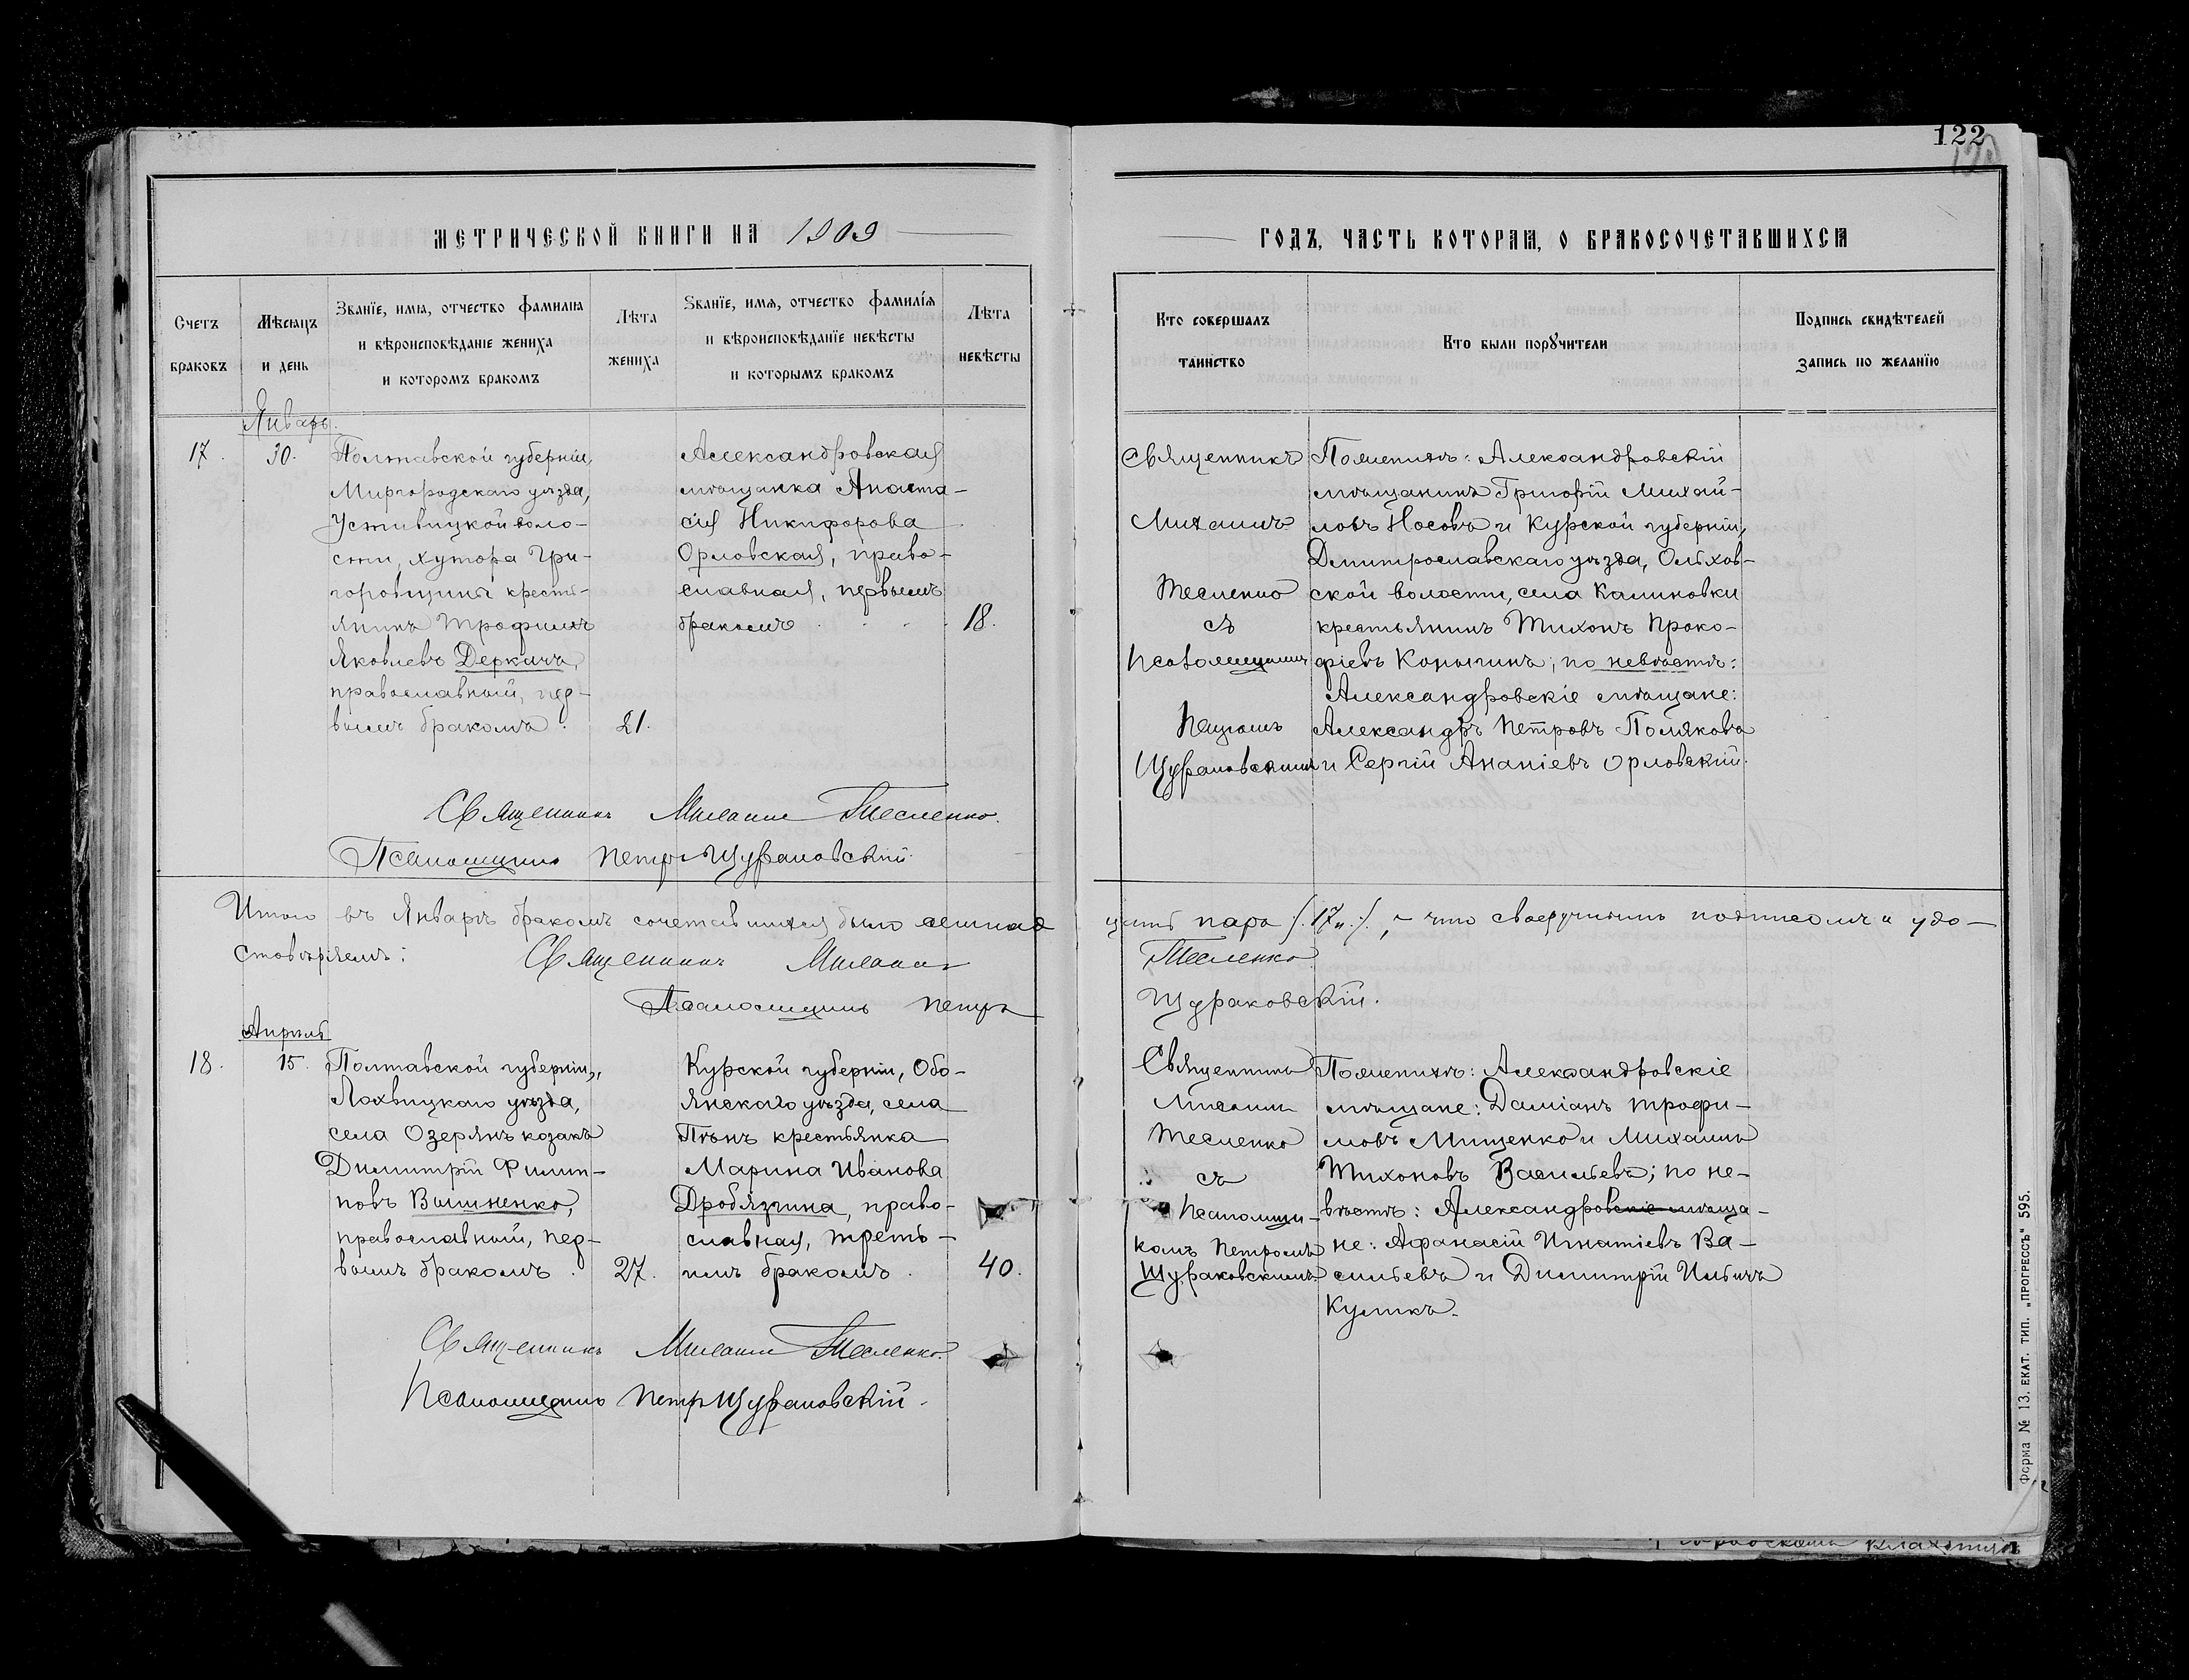 122
МЕТРИЧЕСКОЙ КНИГИ НА 1909
ГОДЪ, ЧАСТЬ КОТОРАЯ, О БРАКОСОЧЕТАВШИХСЯ
Счетъ
браковъ
Мѣсяцъ
и день
Званіе, имя, отчество фамилія
и вѣроисповѣданіе жениха
и которомъ бракомъ
Лѣта
жениха
Званіе, имя, отчество фамилія
и вѣроисповѣданіе невѣсты
и которымъ бракомъ
Лѣта
невѣсты
Кто совершалъ
таинство
Кто были поручители
Подпись свидѣтелей
запись по желанію
Январь.
17.
30.
Полтавской губерніи,
Миргородскаго уѣзда,
Устивицкой воло-
сти, хутора Гри-
горовщины кресть-
янинъ Трофимъ
Яковлевъ Деркачъ,
православный, пер-
вымъ бракомъ.
21.
Александровская
мѣщанка Анаста-
сія Никифорова
Орловская, право-
славная, первымъ
бракомъ
18.
Священникъ
Михаилъ
Тесленко
съ
Псаломщикомъ
Петромъ
Щураковскимъ
По женихѣ: Александровскій
мѣщанинъ Григорій Михай-
ловъ Носовъ и Курской губерніи,
Дмитрославскаго уѣзда, Ольхов-
ской волости, села Калиновки
крестьянинъ Тихонъ Проко-
фіевъ Конягинъ; по невѣстѣ:
Александровскіе мѣщане:
Александръ Петровъ Поляковъ
и Сергій Ананіевъ Орловскій.
Священникъ Михаилъ Тесленко.
Псаломщикъ Петръ Щураковскій.
Итого въ Январѣ бракомъ сочетавшихся было семнад
цать паръ /.17п./., что своеручнымъ подписомъ и удо-
стовѣряемъ:
Священникъ Михаилъ Тесленко
Псаломщикъ Петръ Щураковскій.
Апрѣль
18.
15.
Полтавской губерніи,
Лохвицкаго уѣзда,
села Озерянъ козакъ
Димитрій Филип-
повъ Вишненко,
православный, пер-
вымъ бракомъ.
27.
Курской губерніи, Обо-
янскаго уѣзда, села
Пѣнъ крестьянка
Марина Иванова
Дробязгина, право-
славная, треть-
имъ бракомъ.
40.
Священникъ
Михаилъ
Тесленко
съ
Псаломщи-
комъ Петромъ
Щураковскимъ
По женихѣ: Александровскіе
мѣщане: Даміанъ Трофи-
мовъ Мищенко и Михаилъ
Тихоновъ Васильевъ; по не-
вѣстѣ: Александровскіе мѣща-
не: Афанасій Игнатіевъ Ва-
сильевъ и Димитрій Ильичъ
Куликъ.
Священникъ Михаилъ Тесленко.
Псаломщикъ Петръ Щураковскій.
Форма № 13. ЕКАТ. ТИП. „ПРОГРЕССЪ" 595.